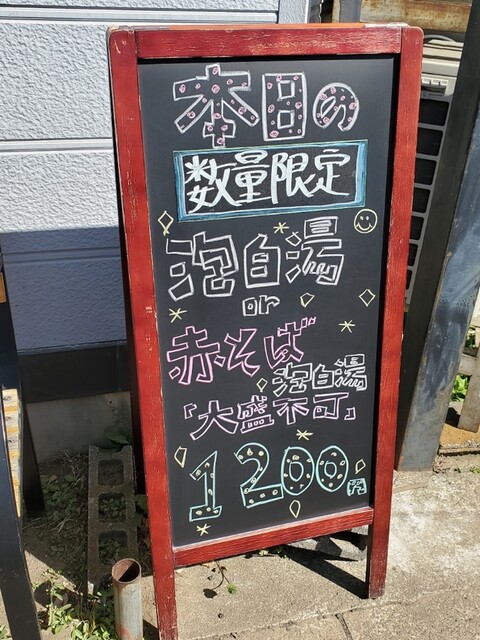 本日の
数量限定
泡白湯
or
赤そば
泡白湯
「大盛不可」
1200円